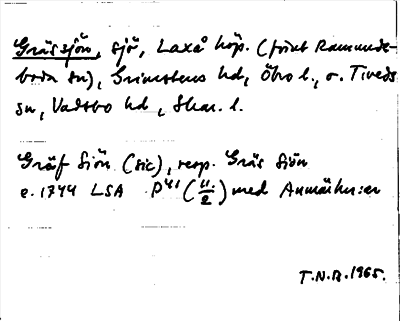 Grässjön, sjö, Laxå köp. (förut Ramunde-
boda sn), Grimstens hd, Öbro l., o. Tiveds
sn, Vadsbo hd, Skar. l.
Gräf Siön (sic), resp. Gräs Siön
c. 1744 LSA P41 (11/2) med Anmärkn:er
T.N.B. 1965.